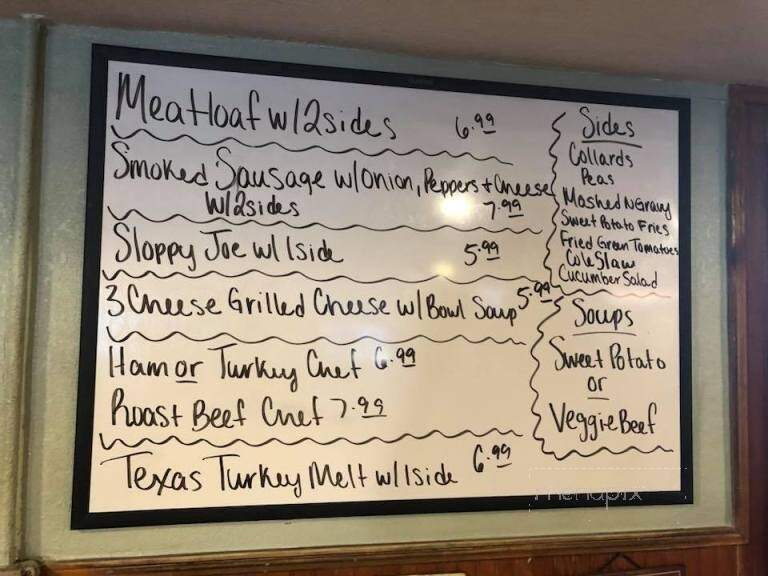 Meatloaf w/2sides 6.99
Smoked Sausage w/onion, Peppers + Cheese
w/2sides 7.99
Sloppy Joe w/1side 5.99
3 Cheese Grilled Cheese w/Bowl Soup 5.99
Ham or Turkey Chef 6.99
Roast Beef Chef 7.99
Texas Turkey Melt w/1side 6.99
Sides
Collards
Peas
Mashed N Gravy
Sweet Potato Fries
Fried Green Tomatoes
Cole Slaw
Cucumber Salad
Soups
Sweet Potato
or
Veggie Beef
menupix